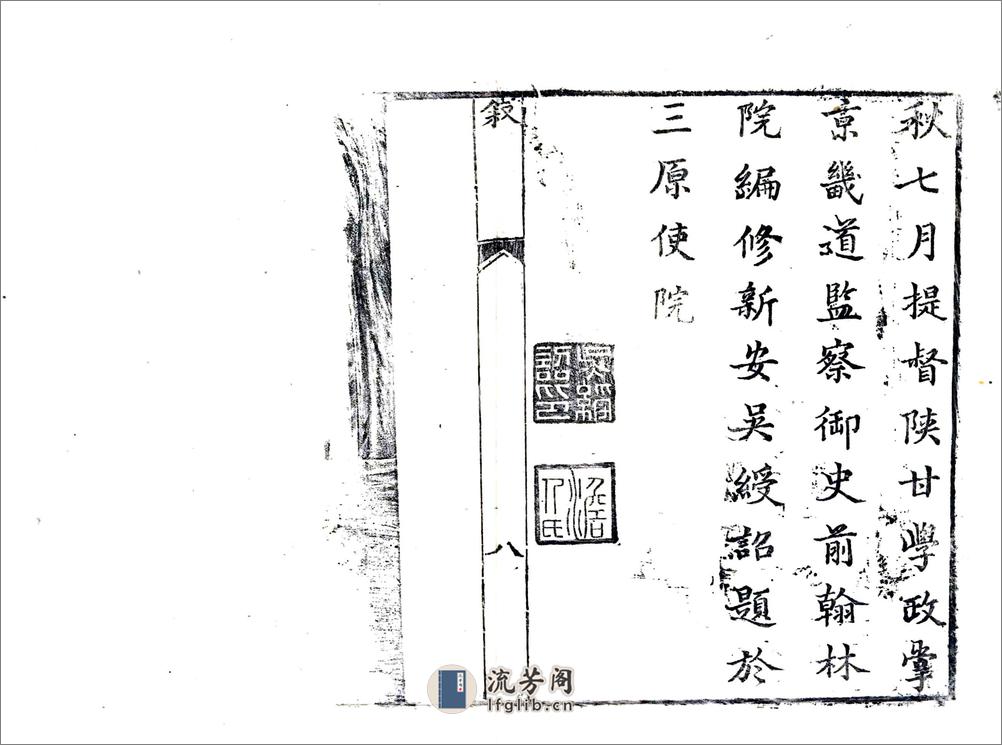 秋七月提督陝甘學政掌
京畿道監察御史前翰林
院編修新安吳綬詔題於
三原使院
吳綬
詔印
澹
人氏
敍
八
流芳阁
lfglib.cn